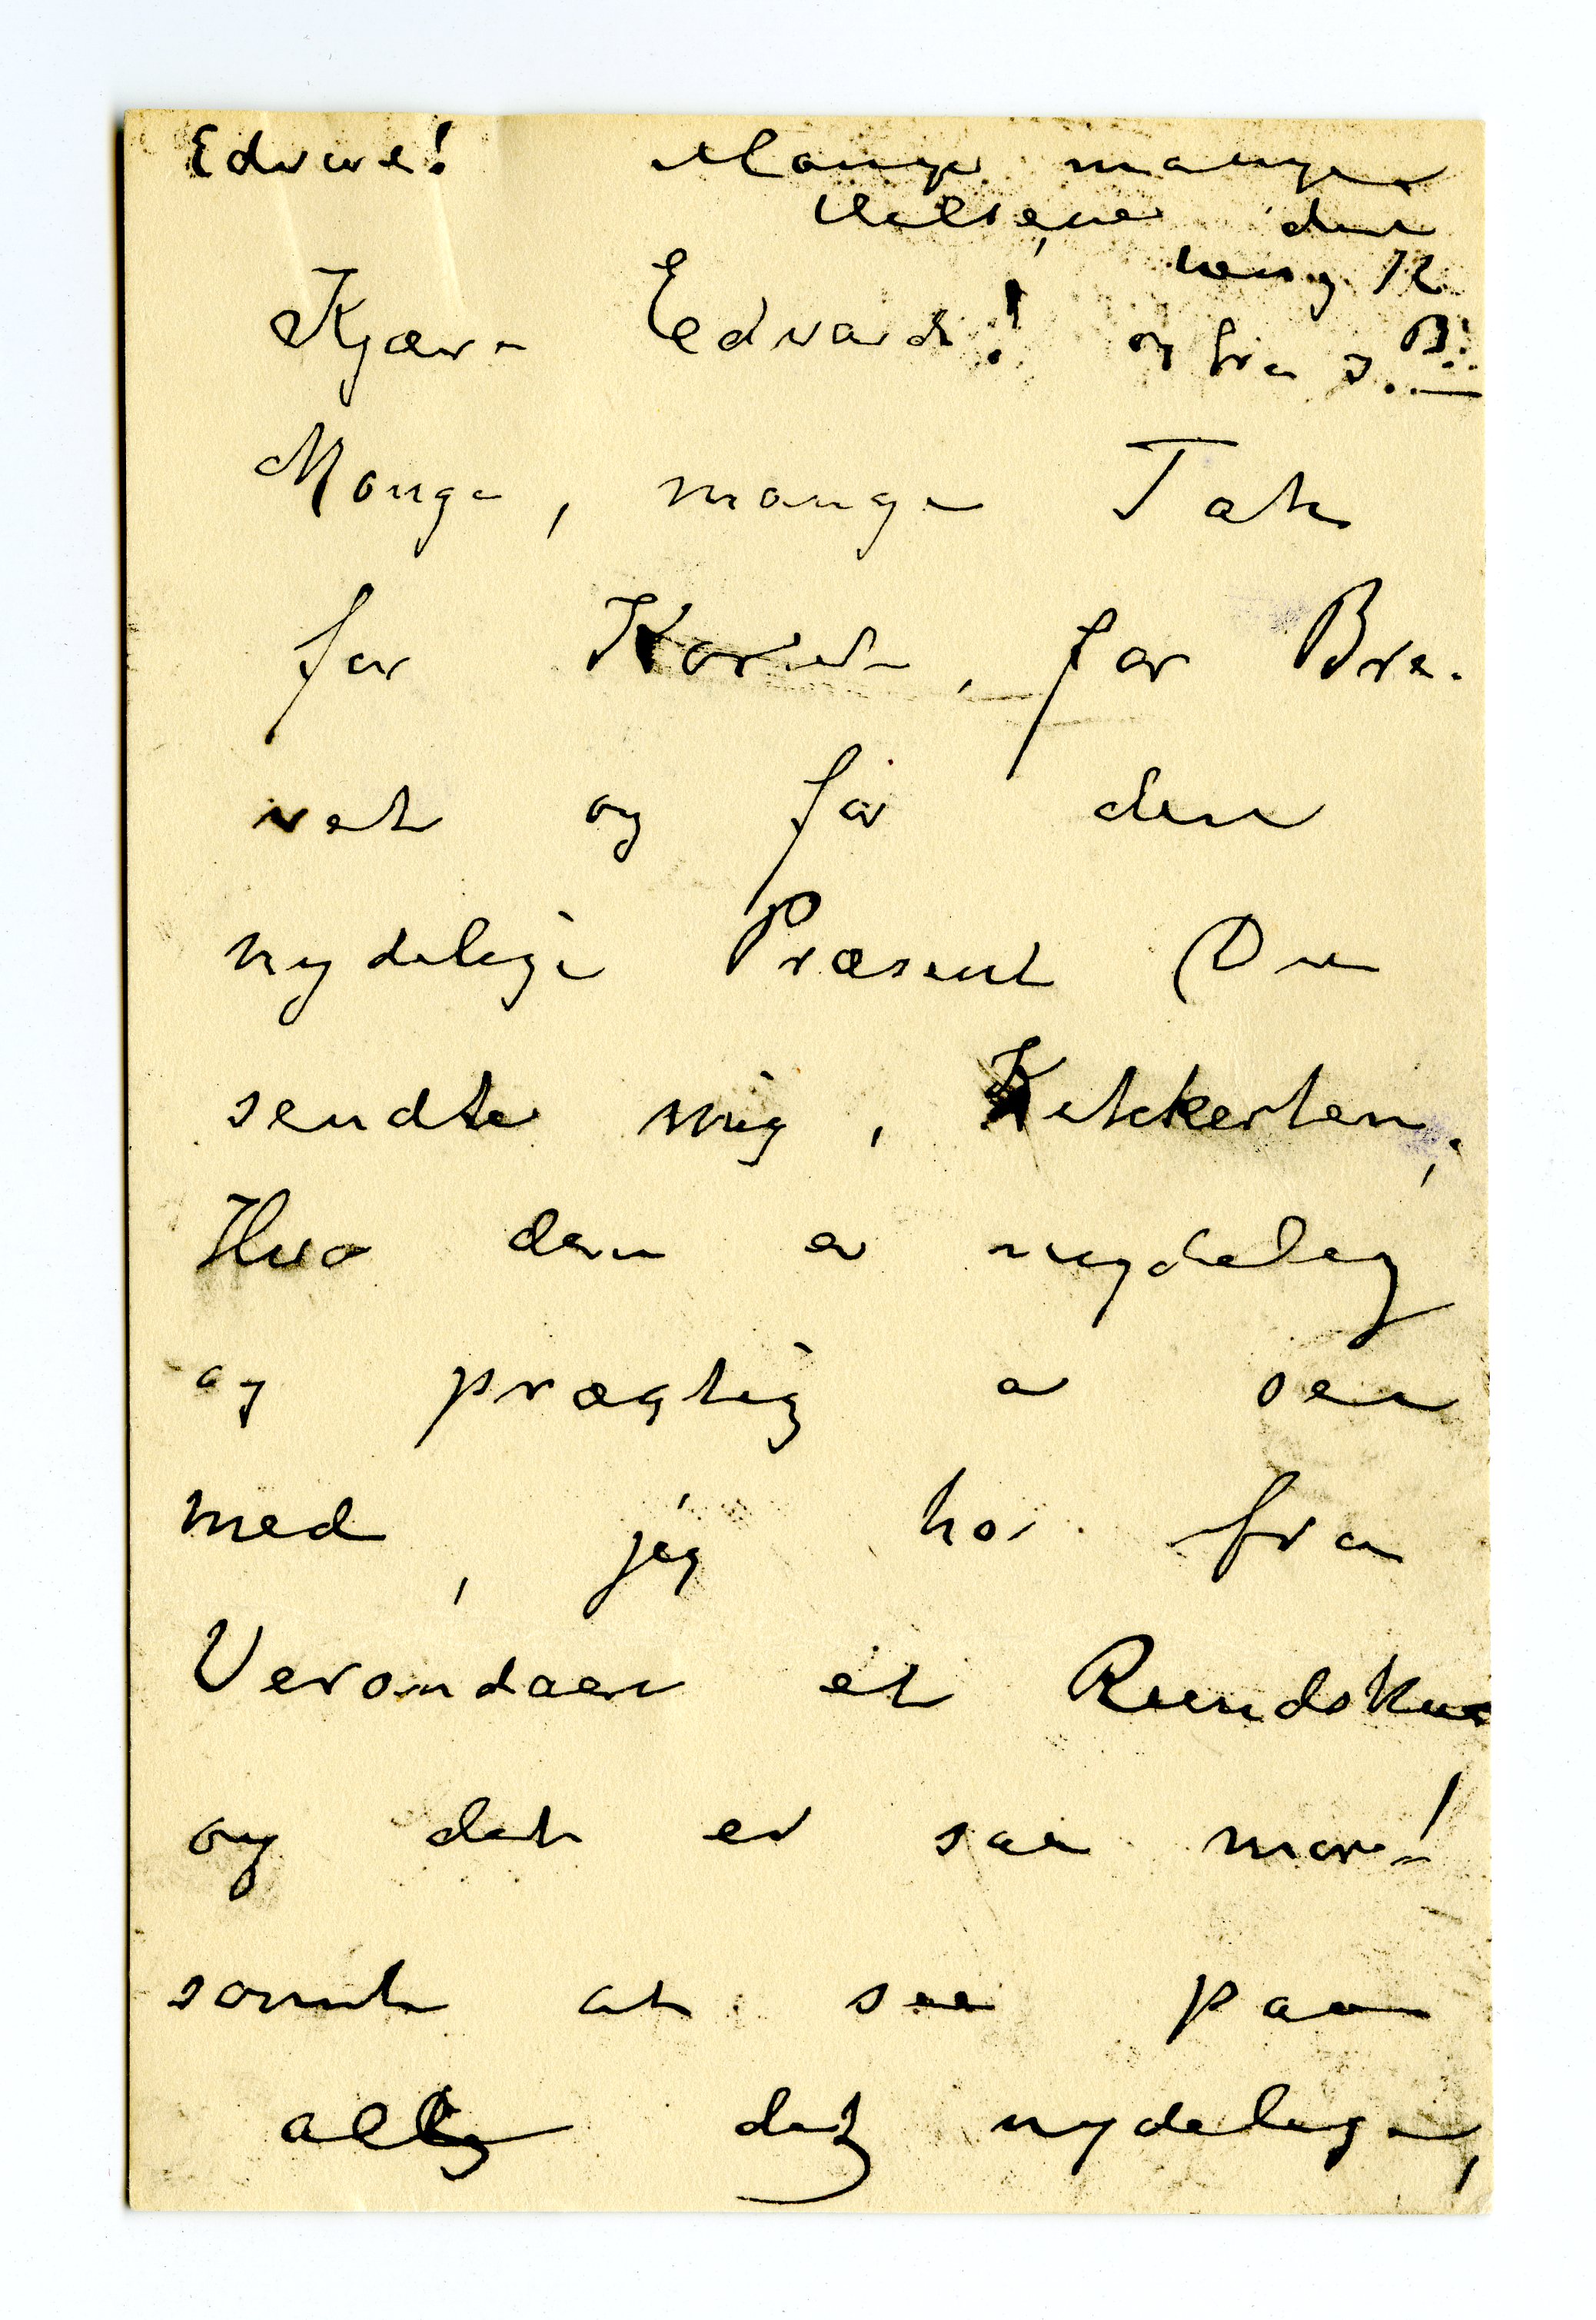 Edvard! Mange mange
Hilsener
Kjære Edvard! og fra J. B.
Mange, mange Tak
for Kortet, for Bre-
vet og for den
nydelige Præsent Du
sendte mig, Kikkerten,
Hvo den er nydelig
og prægtig a see
med, jeg har fra
Verandaen et Rundskue
og det er saa mor-
somt at see paa
alle det nydelige,